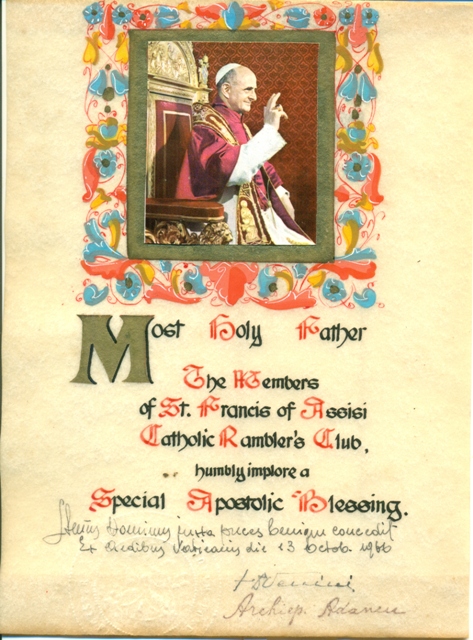 Most Holy Father
The Members
of St. Francis of Assisi
Catholic Rambler's Club,
humbly implore a
Special Apostolic Blessing.
Dominus juxta preces benigne concedit
Ex Aedibus Vaticanis die 13 Octob. 1966
Archiep.